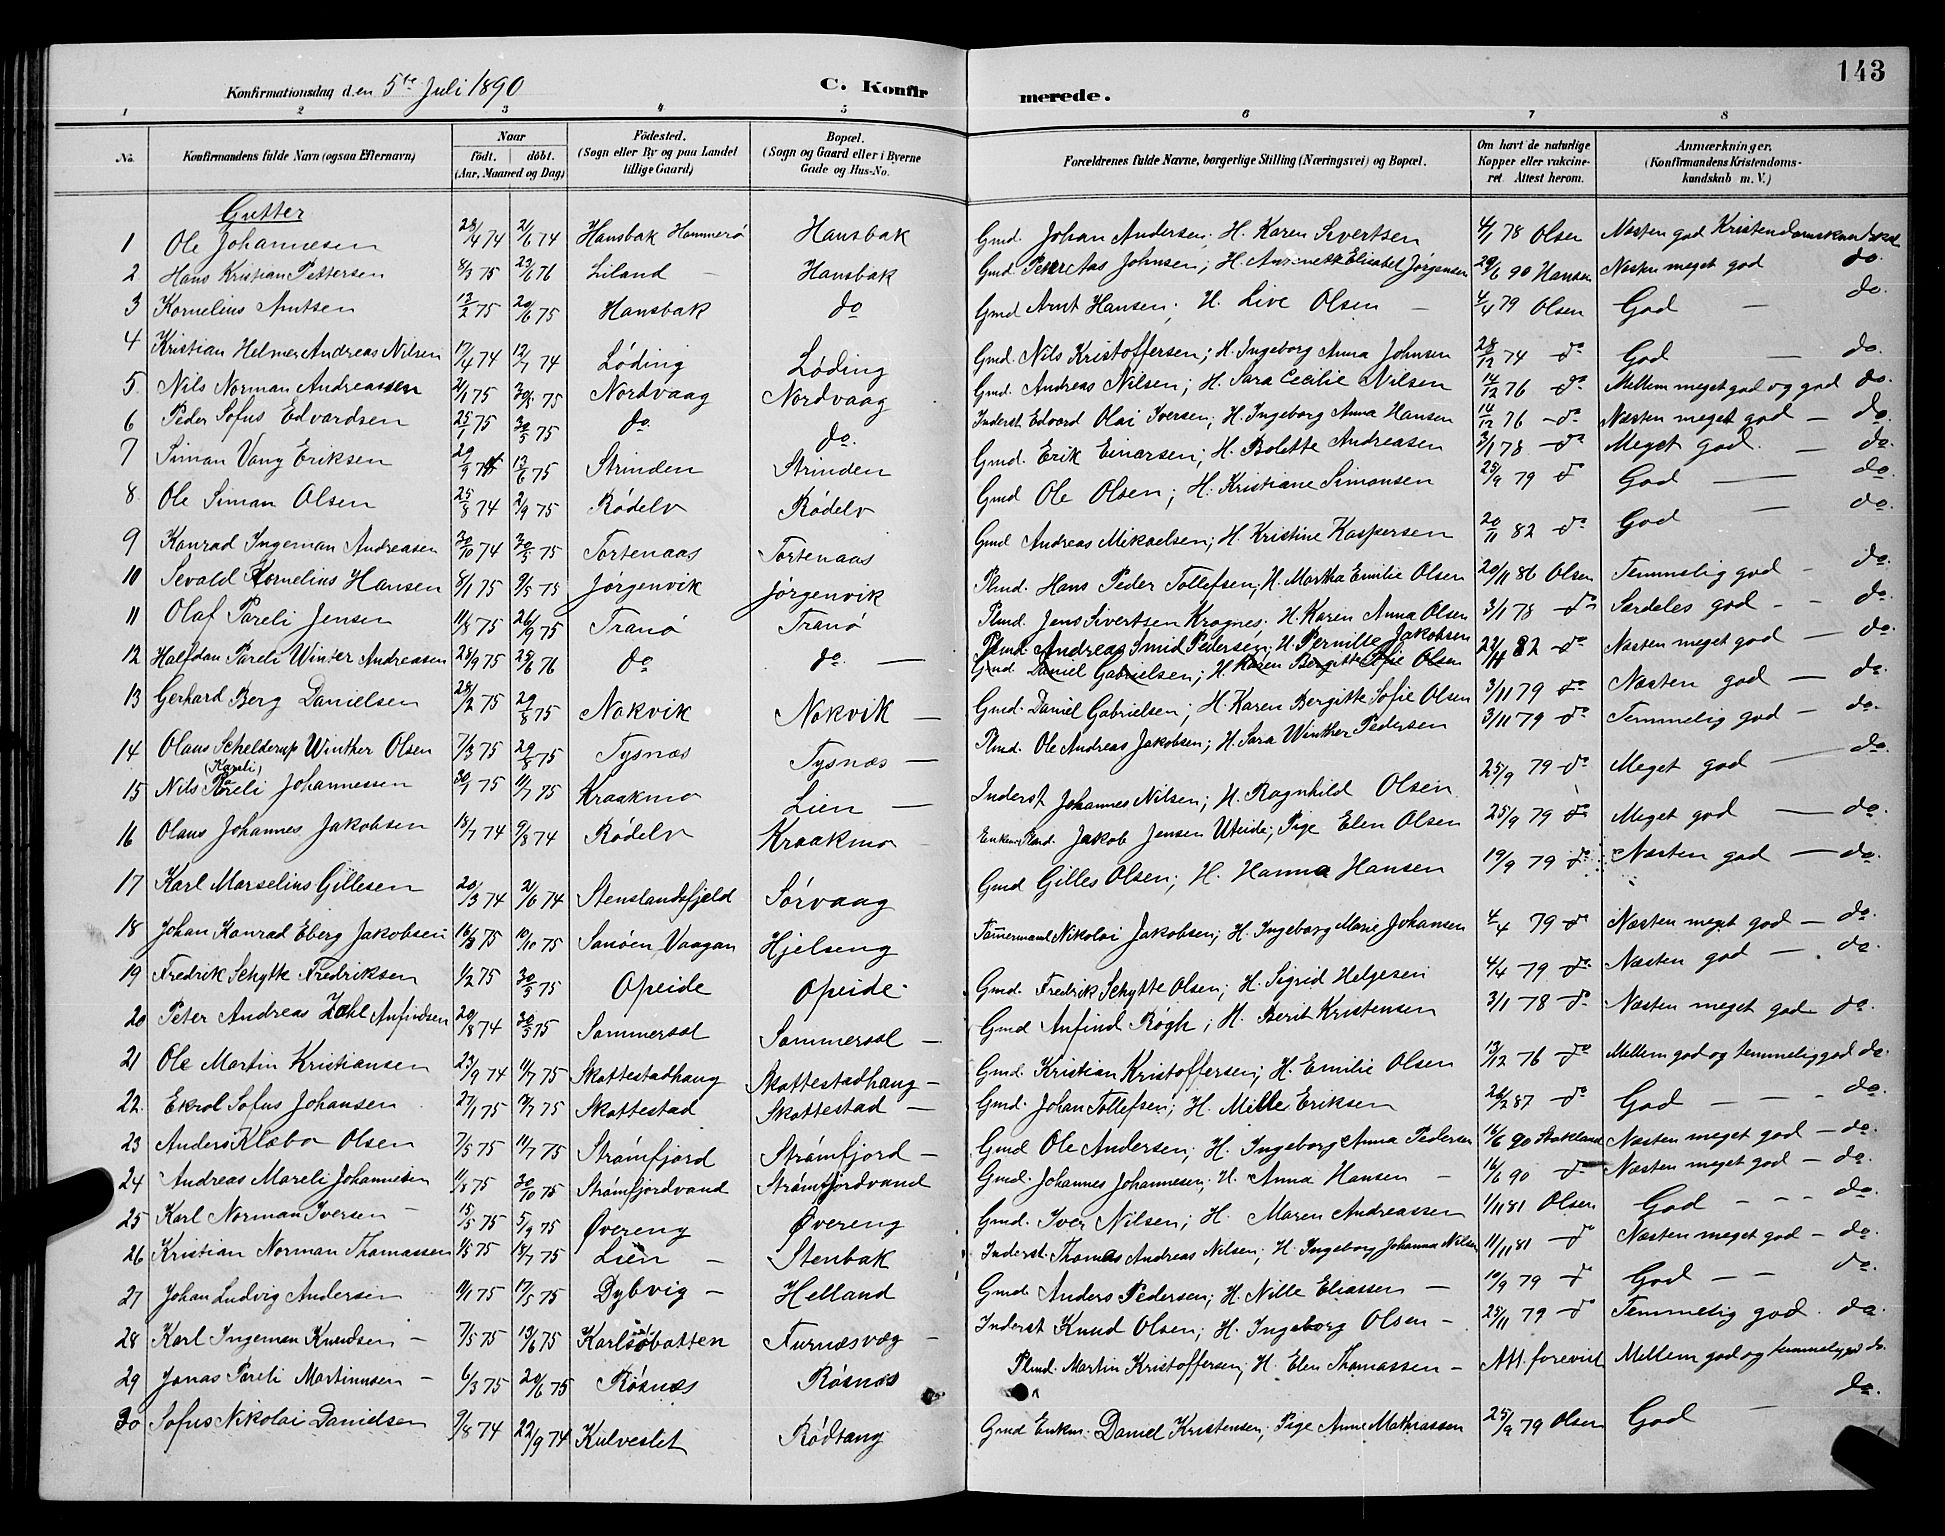 143
Konfirmationsdag den 5te Juli 1890 C. Konfirmerede.
1 2 3 4 5 6 7 8
No. Konfirmandens fulde Navn (ogsaa Efternavn) Naar födt. döbt. (Aar, Maaned og Dag) Födested. (Sogn eller By og paa Landet tillige Gaard) Bopæl. (Sogn og Gaard eller i Byerne Gade og Hus-No. Forældrenes fulde Navne, borgerlige Stilling (Næringsvei) og Bopæl. Om havt de naturlige Kopper eller vakcineret. Attest herom. Anmærkninger. (Konfirmandens Kristendomskundskab m. V.)
Gutter
1 Ole Johannesen 28/4 74 21/6 74 Hansbak Hammerø Hansbak Gmd. Johan Andersen; H. Karen Sivertsen 4/1 78 Olsen Næsten god Kristendomskundskab
2 Hans Kristian Pettersen 8/3 75 23/6 76 Liland — Hansbak Gmd. Peter Aas Johnsen; H. Elisabet Jørgensen 20/6 90 Hansen Næsten meget god do.
3 Kornelius Arntsen 12/2 75 20/6 75 Hansbak do Gmd Arnt Hansen; H. Live Olsen — 4/4 79 Olsen God — do.
4 Kristian Helmer Andreas Nilsen 17/4 74 12/7 74 Løding Løding Gmd. Nils Kristoffersen; H. Ingeborg Anna Johnsen 28/12 74 do God — do.
5. Nils Norman Andreassen 2/1 75 30/5 75 Nordvaag Nordvaag Gmd. Andreas Nilsen; H. Sara Cecilie Nilsen 14/12 76 do Mellem meget god og god do.
6 Peder Sofus Edvardsen 25/1 75 30/5 75 do. do. Inderst. Edvard Olai Iversen; H. Ingeborg Anna Hansen 14/12 76 do Næsten meget god — do.
7 Siman Vang Eriksen 29/9 74 13/6 75 Strinden Strinden Gmd. Erik Einarsen; H. Bolette Andreasen 3/1 78 do Meget god — do.
8. Ole Siman Olsen 25/8 74 2/9 75 Rødelv Rødelv Gmd Ole Olsen; H. Kristiane Simonsen 25/9 79 do God — do.
9 Konrad Ingeman Andreasen 30/10 74 30/5 75 Tortenaas Tortenaas Gmd Andreas Mikaelsen; H. Kristine Kaspersen 20/11 82 do God — do.
10 Sevald Kornelius Hansen 8/1 75 9/5 75 Jørgenvik Jørgenvik Plmd. Hans Peder Tollefsen; H. Martha Emilie Olsen 20/11 86 Olsen Temmelig god — do.
11 Olaf Pareli Jensen 11/8 75 26/9 75 Tranø Tranø Plmd. Jens Sivertsen Kragnes. H. Karen Anna Olsen 3/1 78 do Særdeles god — do.
12 Halfdan Pareli Winter Andreasen 28/9 75 25/6 76 do do — Plmd Andreas Smid Pedersen; H. Pernille Jakobsen 22/11 82 do Næsten meget god — do.
Gmd Daniel Gabrielsen; H. Karen Bergitte Sofie Olsen
13 Gerhard Berg Danielsen 28/2 75 29/8 75 Nokvik Nokvik — Gmd. Daniel Gabrielsen; H. Karen Bergitte Sofie Olsen 3/11 79 do Næsten god — do.
14 Olaus Schelderup Winther Olsen 7/3 75 29/8 75 Tysnæs Tysnæs — Plmd. Ole Andreas Jakobsen; H. Sara Winther Pedersen 3/11 79 do Temmelig god — do.
(Kareli)
15 Nils Pareli Johannessen 30/1 75 11/7 75 Kraakmo Lien — Inderst Johannes Nilsen; H. Ragnhild Olsen 25/9 79 do Meget god — do.
16 Olaus Johannes Jakobsen 18/7 74 9/8 74 Rødelv Kraakmo Plmd. Jakob Jensen Uteide; Pige Elen Olsen 25/9 79 do Meget god — do.
17 Karl Marselius Gillesen 20/3 74 21/6 74 Stenslandsfjeld Sørvaag Gmd Gilles Olsen; H. Hanna Hansen 19/9 79 do Næsten god — do.
18 Johan Konrad Eberg Jakobsen 16/3 75 10/10 75 Sanøen Vaagan Hjelseng Tømmermand Nikolai Jakobsen; H. Ingeborg Marie Johansen 4/4 79 do Næsten meget god — do.
19 Fredrik Schytte Fredriksen 1/2 75 30/5 75 Opeide Opeide Gmd. Fredrik Schytte Olsen; H. Sigrid Helgesen 4/4 79 do Næsten god — do.
20 Peter Andreas Zahl Anfindsen 20/8 74 30/5 75 Sommersel Sommersel — Gmd Anfind Røgh; H. Berit Kristensen 3/1 78 do Næsten meget god do.
21 Ole Martin Kristiansen 23/9 74 11/7 75 Skottestadhaug Skottestadhaug — Gmd. Kristian Kristoffersen; H. Emilie Olsen 13/12 76 do Mellem god og temmelig god do.
22. Ekrol Sofus Johansen 27/1 75 11/7 75 Skottestad Skottestad — Gmd. Johan Tollefsen; H. Mille Eriksen 26/2 87 do God — do.
23 Anders Klæbo Olsen 7/5 75 11/7 75 Strømfjord Strømfjord — Gmd Ole Andersen; H. Ingeborg Anna Pedersen 16/6 90 Stokland Næsten meget god — do.
24 Andreas Mareli Johannesen 1/8 75 30/10 75 Strømfjordvand Strømfjordvand Gmd. Johannes Johannesen; H. Anna Hansen — 16/6 90 do Næsten meget god — do.
25 Karl Norman Iversen — 15/5 75 5/9 75 Øvereng Øvereng Gmd. Iver Nilsen; H. Maren Andreassen 11/11 81 Olsen God — do.
26 Kristian Norman Thomassen 1/5 75 18/7 75 Lien — Stenbak Inderst. Thomas Andreas Nilsen; H. Ingeborg Johanna Nilsen 11/11 81 do Næsten meget god — do.
27 Johan Ludvig Andersen 11/1 75 17/5 75 Dybvig — Helland Gmd. Anders Pedersen; H. Nille Eliassen — 10/9 79 do God — do.
28 Karl Ingeman Knudsen — 7/5 75 13/6 75 Karlsøbotten Furnæsvæg — Inderst Knud Olsen; H. Ingeborg Olsen — 25/11 79 do Temmelig god. do.
29 Jonas Pareli Martinusen — 6/3 75 20/6 75 Røsnæs Røsnæs Plmd. Martin Kristoffersen; H. Elen Thomassen — Att. forevist Mellem god og temmelig god do.
30 Sofus Nikolai Danielsen 9/8 74 22/9 74 Kulveslet Rødtang Gmd Enkm. Daniel Kristensen; Pige Anne Mathiassen 25/9 79 Olsen God — do.